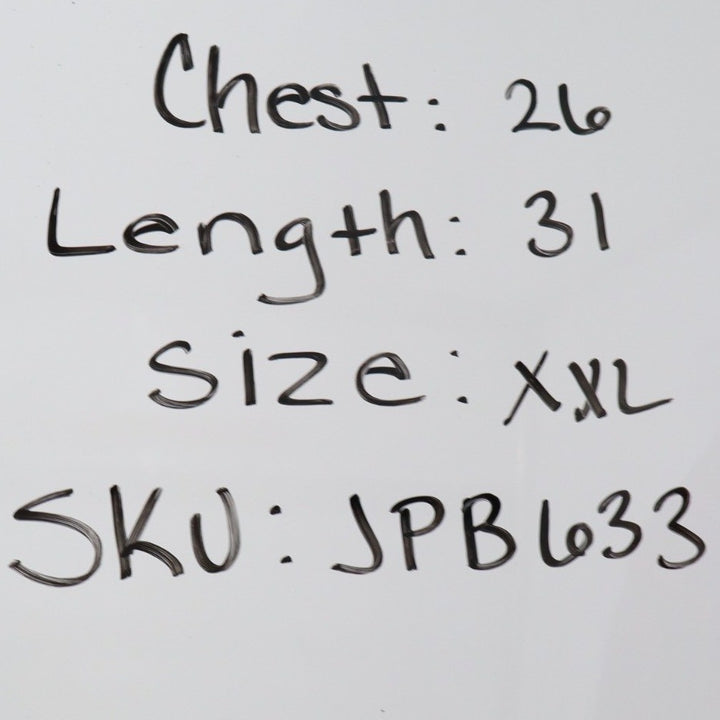 Chest: 26
Length: 31
Size: XXL
SKU: JPB633